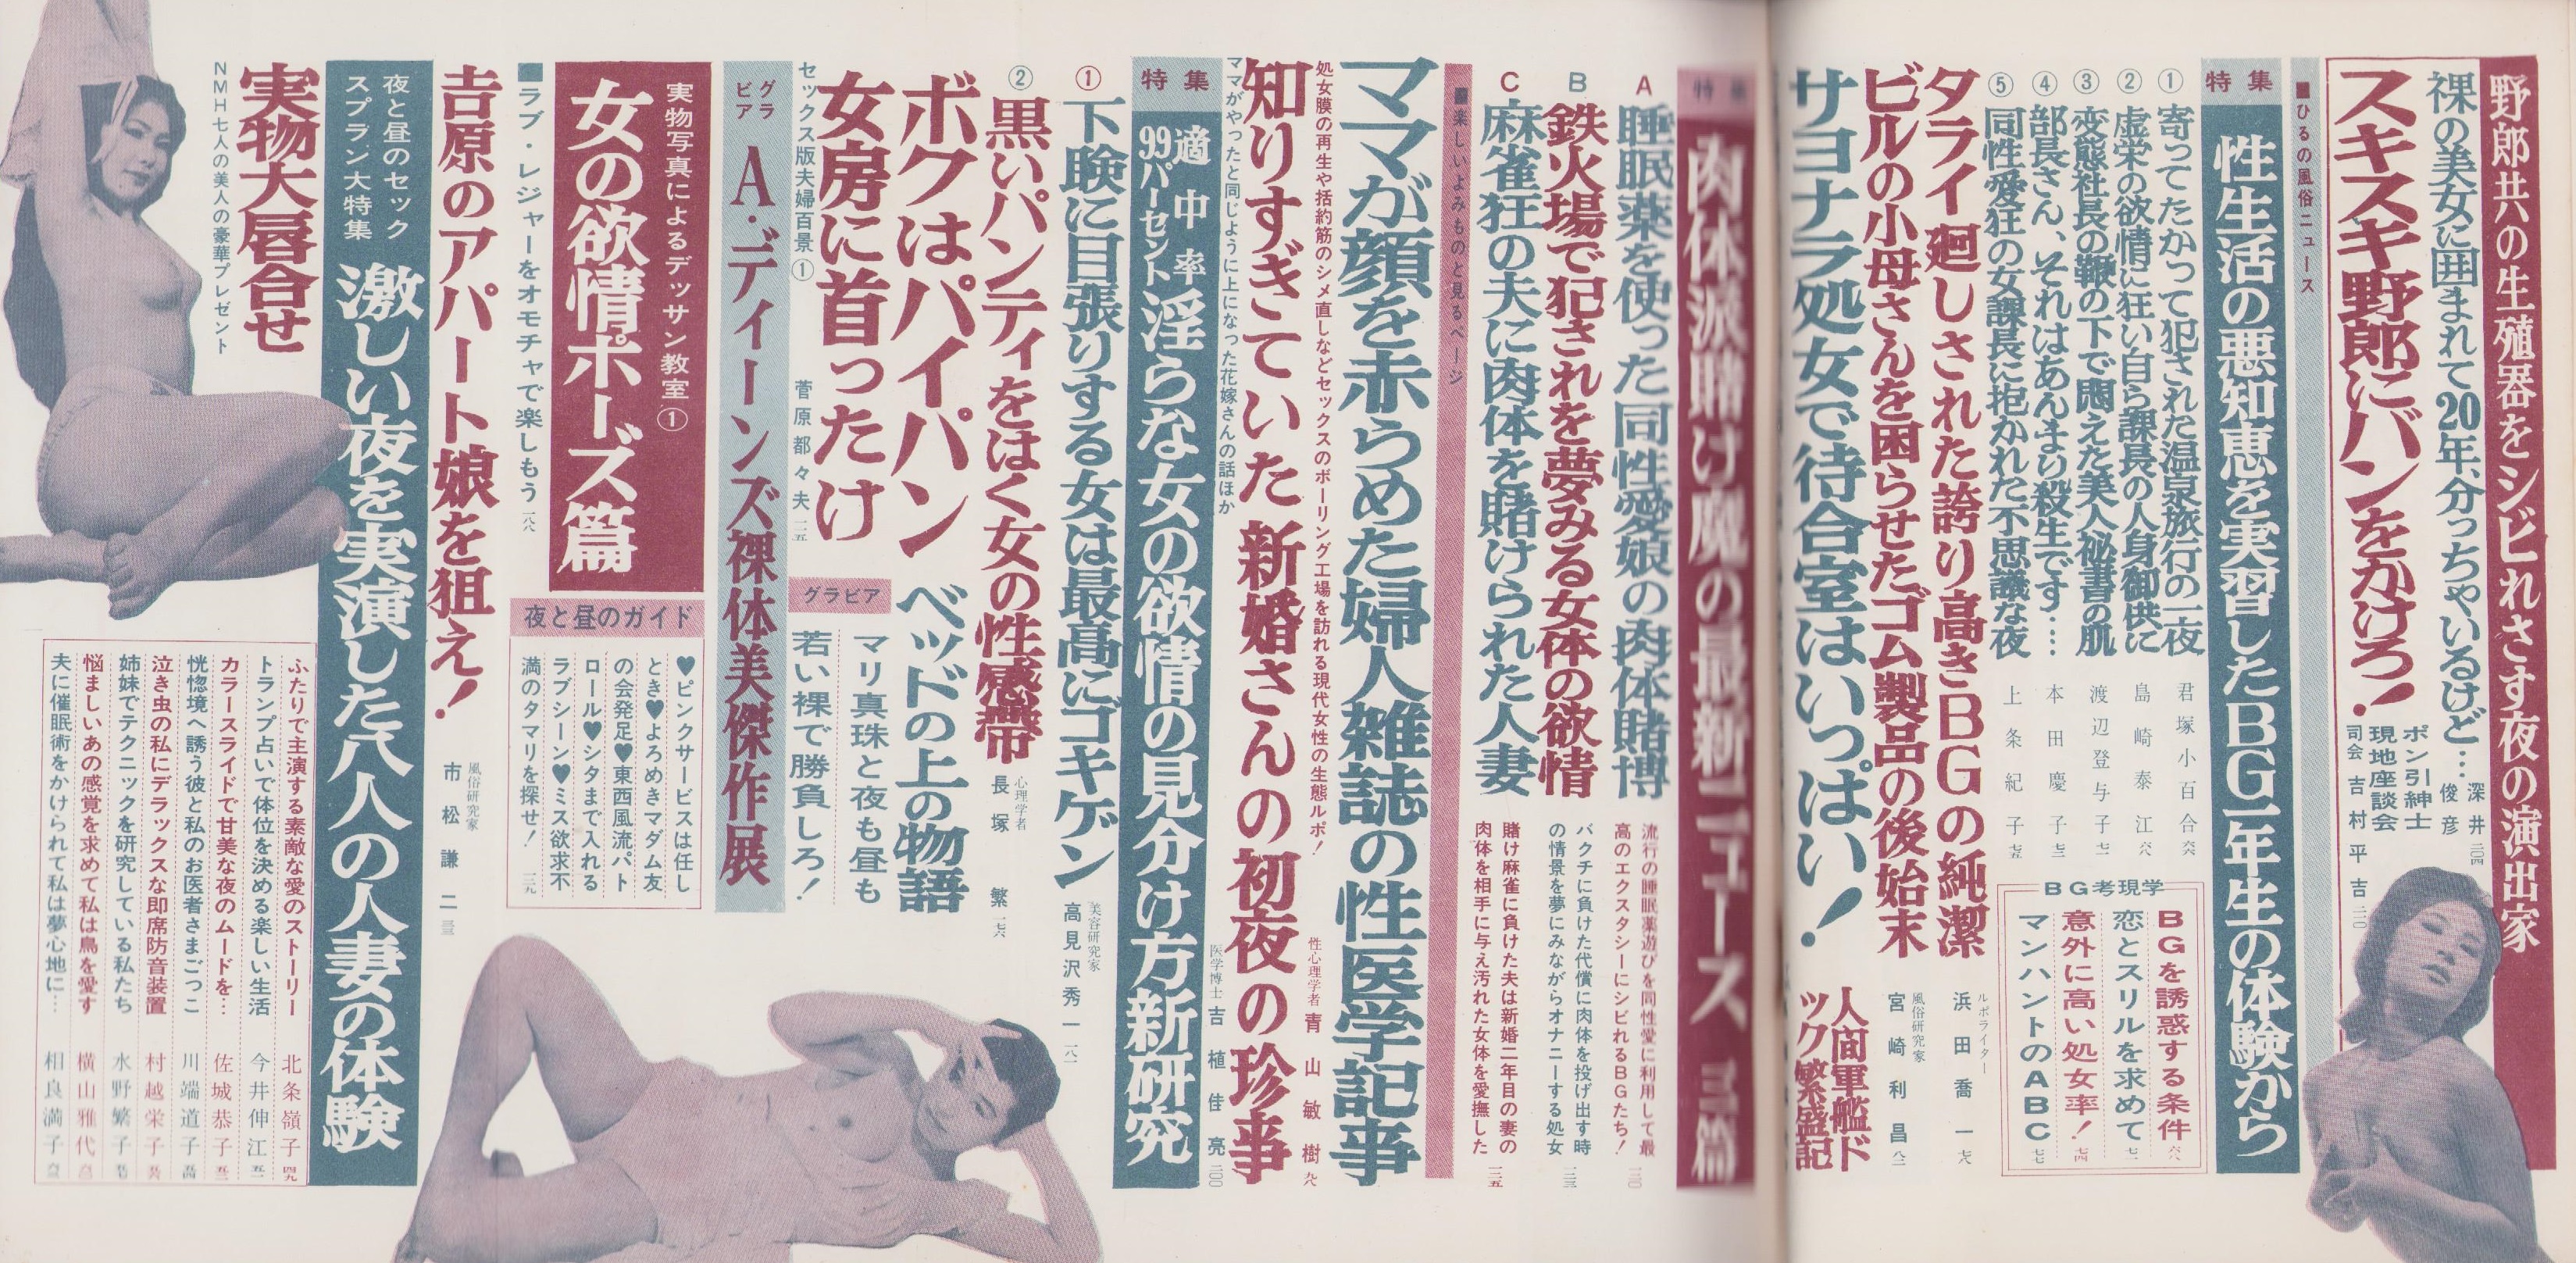 野郎共の生殖器をシビれさす夜の演出家
裸の美女に囲まれて20年、分っちゃいるけど…
深井俊彦
二〇四
スキスキ野郎にバンをかけろ!
ポン引紳士
現地座談会
司会 吉村平吉
■ひるの風俗ニュース
特集
性生活の悪知恵を実習したBG一年生の体験から
①寄ってたかって犯された温泉旅行の一夜
君塚小百合
②虚栄の欲情に狂い自ら課長の人身御供に
島崎泰江
③変態社長の鞭の下で悶えた美人秘書の肌
渡辺登与子
④部長さん、それはあんまり殺生です‥‥
本田慶子
⑤同性愛狂の女課長に抱かれた不思議な夜
上条紀子
BG考現学
BGを誘惑する条件
恋とスリルを求めて
意外に高い処女率!
マンハントのABC
タライ廻しされた誇り高きBGの純潔
ルポライター
浜田喬一
ビルの小母さんを困らせたゴム製品の後始末
風俗研究家
宮崎利昌
サヨナラ処女で待合室はいっぱい!
人間軍艦ド
ック繁盛記
特集
肉体派賭け魔の最新ニュース 三篇
A 睡眠薬を使った同性愛娘の肉体賭博
流行の睡眠薬遊びを同性愛に利用して最
高のエクスタシーにシビれるBGたち!
B 鉄火場で犯されを夢みる女体の欲情
バクチに負けた代償に肉体を投げ出す時
の情景を夢にみながらオナニーする処女
C 麻雀狂の夫に肉体を賭けられた人妻
賭け麻雀に負けた夫は新婚二年目の妻の
肉体を相手に与え汚れた女体を愛撫した
■楽しいよみものと見るページ
ママが顔を赤らめた婦人雑誌の性医学記事
処女膜の再生や括約筋のシメ直しなどセックスのボーリング工場を訪れる現代女性の生態ルポ!
性心理学者
青山敏樹
知りすぎていた新婚さんの初夜の珍事
ママがやったと同じように上になった花嫁さんの話ほか
医学博士
吉植佳亮
特集
適中率
99パーセント
淫らな女の欲情の見分け方新研究
①下験に目張りする女は最高にゴキゲン
美容研究家
高見沢秀
②黒いパンティをはく女の性感帯
心理学者
長塚繁
ボクはパイパン ベッドの上の物語
女房に首ったけ
セックス版夫婦百景①
菅原都々夫
グラビア
マリ真珠と夜も昼も
若い裸で勝負しろ!
グラビア
A・ディーンズ裸体美傑作展
実物写真によるデッサン教室①
女の欲情ポーズ篇
夜と昼のガイド
♥ピンクサービスは任し
とき♥よろめきマダム友
の会発足♥東西風流パト
ロール♥シタまで入れる
ラブシーン♥ミス欲求不
満のタマリを探せ!
■ラブ・レジャーをオモチャで楽しもう
吉原のアパート娘を狙え!
風俗研究家
市松謙二
夜と昼のセック
スプラン大特集
激しい夜を実演した八人の人妻の体験
ふたりで主演する素敵な愛のストーリー 北条嶺子
トランプ占いで体位を決める楽しい生活 今井伸江
カラースライドで甘美な夜のムードを… 佐城恭子
恍惚境へ誘う彼と私のお医者さまごっこ 川端道子
泣き虫の私にデラックスな即席防音装置 村越栄子
姉妹でテクニックを研究している私たち 水野繁子
悩ましいあの感覚を求めて私は鳥を愛す 横山雅代
夫に催眠術をかけられて私は夢心地に… 相良満子
実物大唇合せ
NMH七人の美人の豪華プレゼント